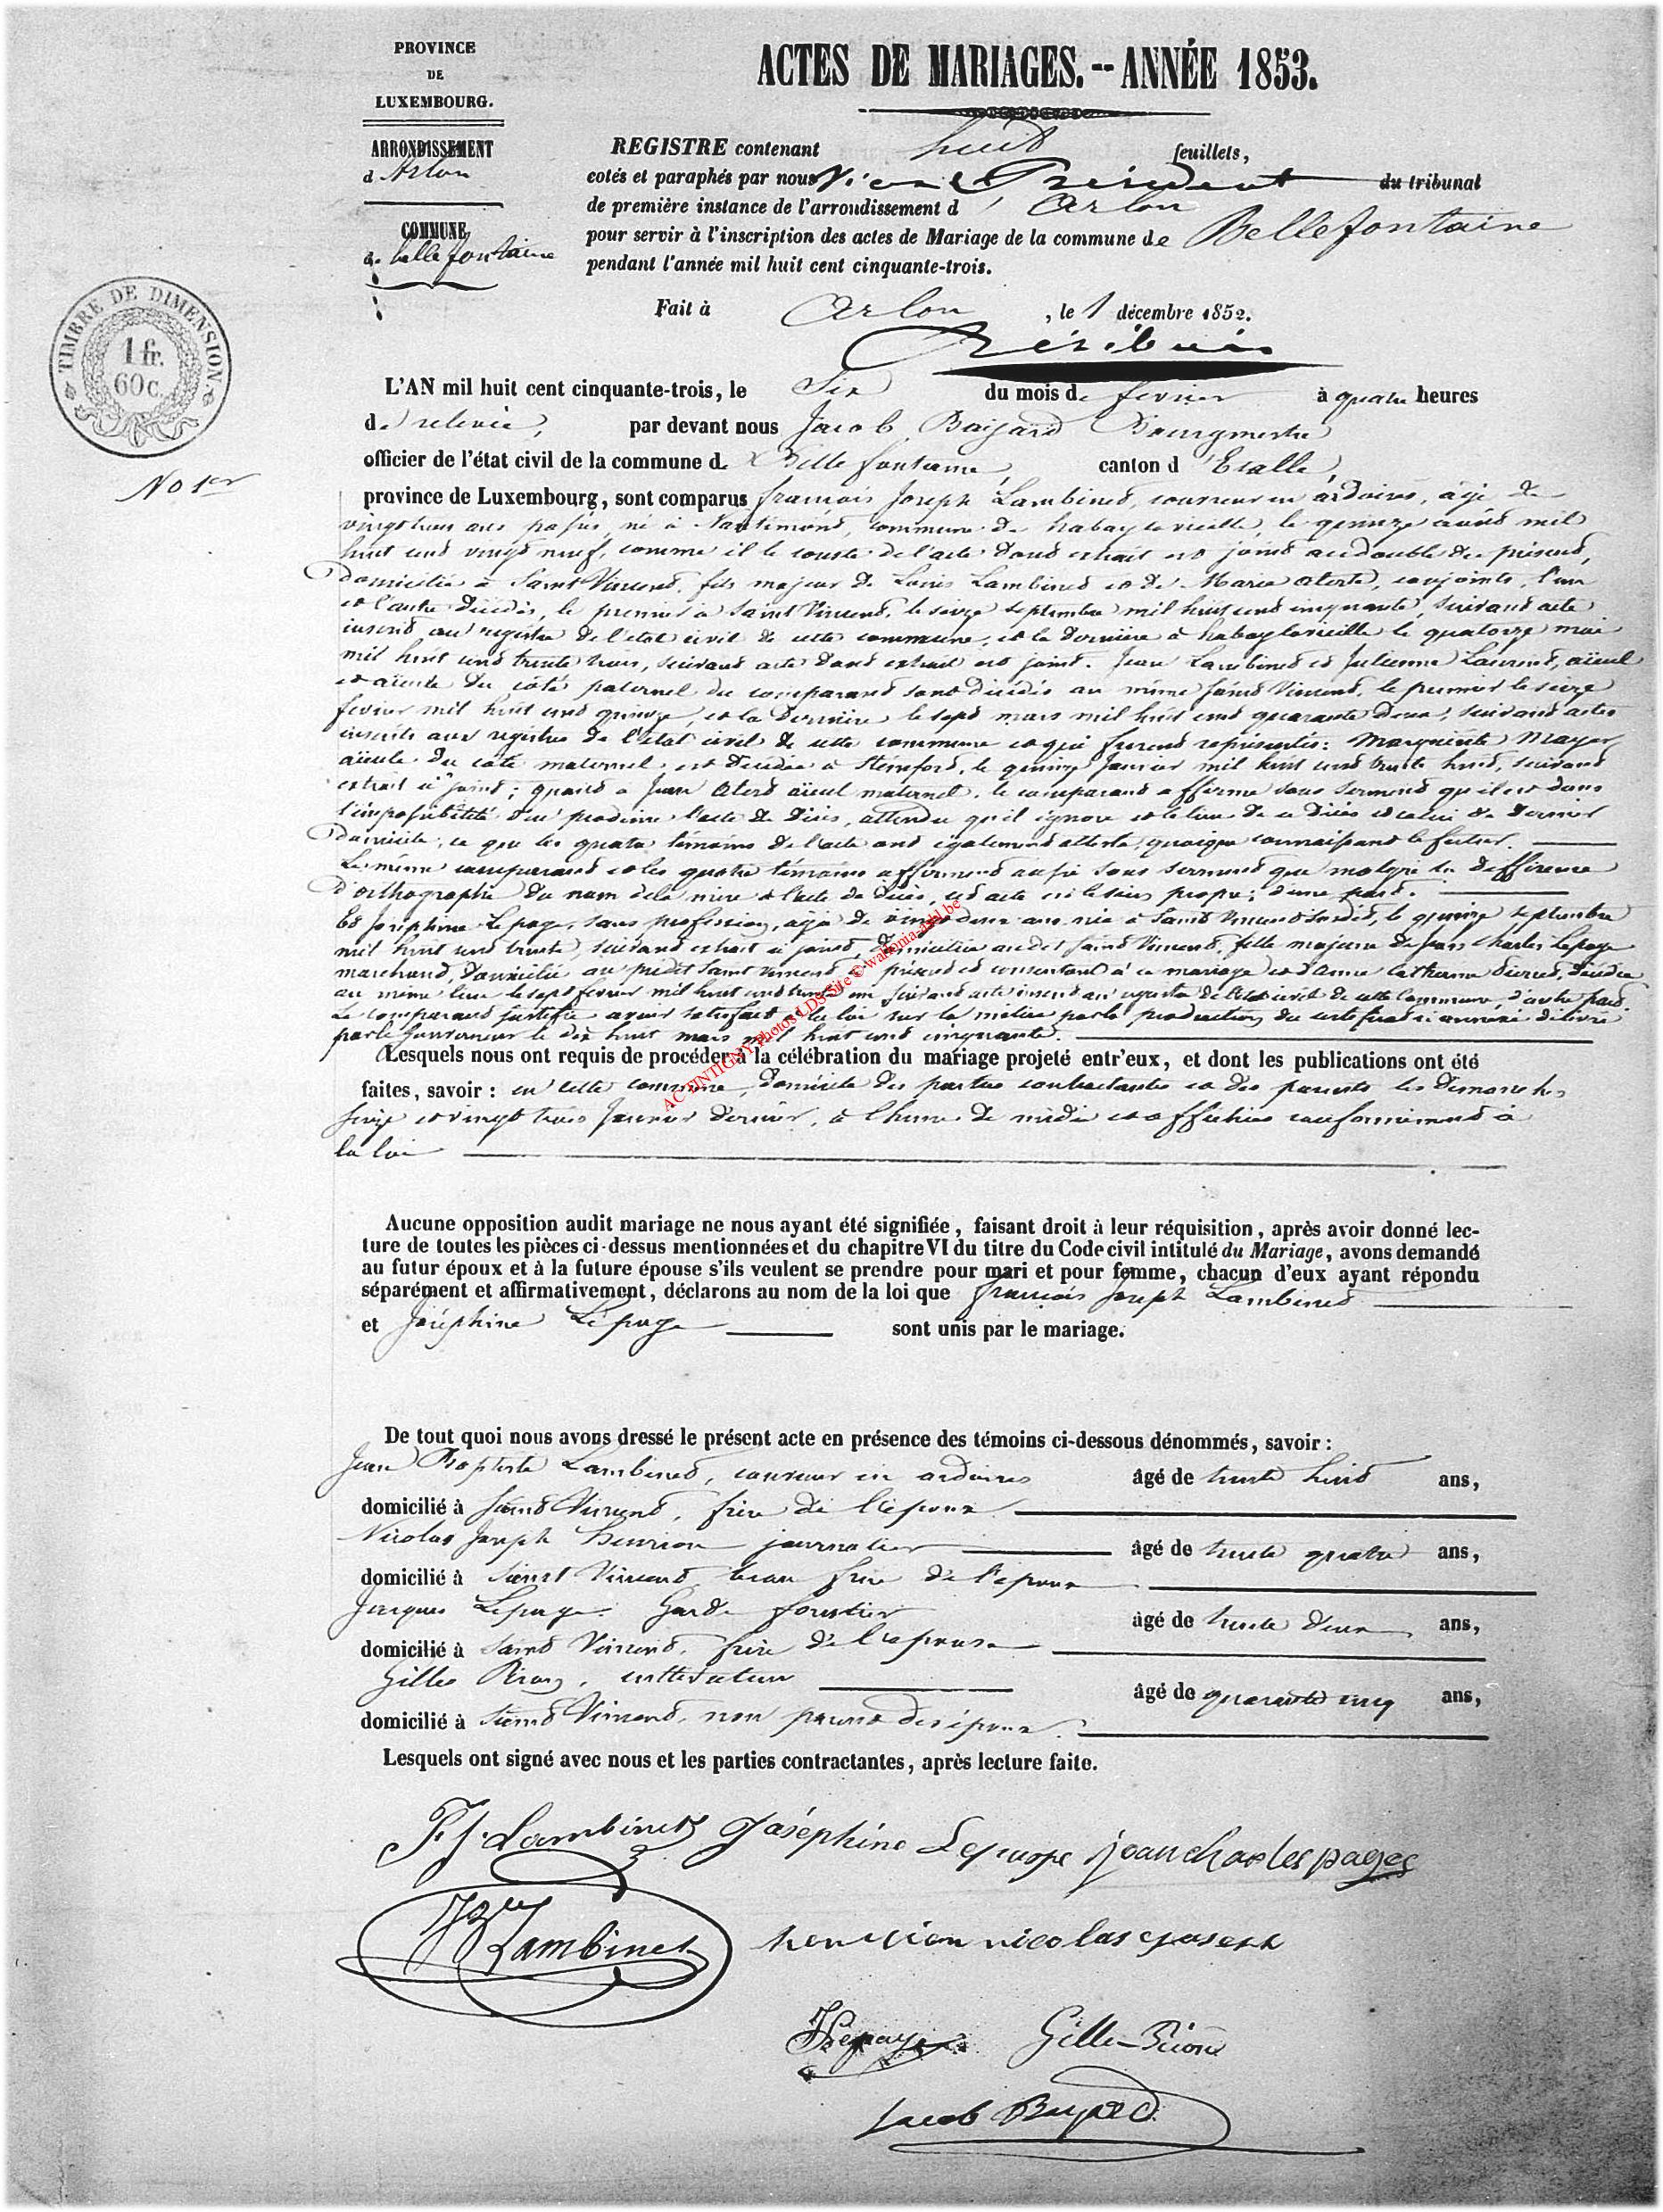 PROVINCE
DE
LUXEMBOURG.
ARRONDISSEMENT
d'Arlon
COMMUNE
de bellefontaine
TIMBRE DE DIMENSION.
1 fr.
60 c.
No 1er
ACTES DE MARIAGES. -- ANNÉE 1853.
REGISTRE contenant huit feuillets,
cotés et paraphés par nous Vice Président du tribunal
de première instance de l'arrondissement d'Arlon
pour servir à l'inscription des actes de Mariage de la commune de Bellefontaine
pendant l'année mil huit cent cinquante-trois.
Fait à Arlon, le 1 décembre 1852.
L'AN mil huit cent cinquante-trois, le Six du mois de fevrier à quatre heures
de relevée, par devant nous Jacob Bajard Bourgmestre
officier de l'état civil de la commune de Bellefontaine, canton d'Etalle,
province de Luxembourg, sont comparus françois Joseph Lambinet, couvreur en ardoises, âgé de
vingt trois ans passés, né à Nantimont, commune de habay la vieille, le quinze août mil
huit cent vingt neuf, comme il le conste de l'acte dont extrait est joint au double du présent,
domicilié à Saint Vincent, fils majeur de Louis Lambinet et de Marie Alerte, conjoints, l'un
et l'autre décédés, le premier à Saint Vincent, le seize septembre mil huit cent cinquante, suivant acte
inscrit au registre de l'état civil de cette commune, et la dernière à habaylavieille le quatorze mai
mil huit cent trente trois, suivant acte dont extrait est joint. Jean Lambinet et Julienne Laurent, aïeul
et aïeule du côté paternel du comparant sont décédés au même Saint Vincent, le premier le seize
fevrier mil huit cent quinze, et la dernière le sept mars mil huit cent quarante deux, suivant actes
inscrits aux registres de l'état civil de cette commune et qui furent représentés: Marguerite Mayer,
aïeule du côté maternel est décédée à Steinfort, le quinze Janvier mil huit cent trente huit, suivant
extrait ci joint; quant à Jean Alerd aïeul maternel, le comparant affirme sous serment qu'il est dans
l'impossibilité d'en produire l'acte de décès, attendu qu'il ignore et le lieu de ce décès et celui de dernier
domicile, ce que les quatre témoins de l'acte ont également attesté, quoique connaissant le futur.
Le même comparant et les quatre témoins affirment aussi sous serment que malgré la différence
d'orthographe du nom de la mère à l'acte de décès, cet acte est le sien propre; d'une part.
Et Joséphine Lepage, sans profession, âgée de vingt deux ans, née à Saint Vincent susdit, le quinze septembre
mil huit cent trente, suivant extrait ci joint, domiciliée audit Saint Vincent, fille majeure de Jean Charles Lepage
marchand, domicilié au prédit Saint Vincent, présent et consentant à ce mariage et d'Anne Catherine décédée
au même lieu le sept fevrier mil huit cent suivant acte inscrit au registre de l'état civil de cette Commune, d'autre part.
Le comparant justifie avoir satisfait à la loi sur la milice par la production du certificat ci annexé délivré
par le Gouverneur le dix huit mars mil huit cent cinquante.
Lesquels nous ont requis de procéder à la célébration du mariage projeté entr'eux, et dont les publications ont été
faites, savoir : en cette commune, domicile des parties contractantes et des parents les Dimanches
seize et vingt trois Janvier dernier, à l'heure de midi et affichées conformément à
la loi
Aucune opposition audit mariage ne nous ayant été signifiée, faisant droit à leur réquisition, après avoir donné lec-
ture de toutes les pièces ci-dessus mentionnées et du chapitre VI du titre du Code civil intitulé du Mariage, avons demandé
au futur époux et à la future épouse s'ils veulent se prendre pour mari et pour femme, chacun d'eux ayant répondu
séparément et affirmativement, déclarons au nom de la loi que françois Joseph Lambinet
et Joséphine Lépage sont unis par le mariage.
De tout quoi nous avons dressé le présent acte en présence des témoins ci-dessous dénommés, savoir :
Jean Baptiste Lambinet, couvreur en ardoises âgé de trente huit ans,
domicilié à Saint Vincent, frère de l'époux
Nicolas Joseph Henrion journalier âgé de trente quatre ans,
domicilié à Saint Vincent beau frère de l'époux
Jacques Lepage Garde forestier âgé de trente deux ans,
domicilié à Saint Vincent, frère de l'épouse
Gilles Piron, instituteur âgé de quarante cinq ans,
domicilié à Saint Vincent, non parent des époux.
Lesquels ont signé avec nous et les parties contractantes, après lecture faite.
F. J. Lambinet Joséphine Lepage jean charles pages
Lambinet henrion nicolas joseph
JLepage Gille Piron
Jacob Bajard
AC-TINTIGNY Photos LDS-Site © wallonia-asbl.be